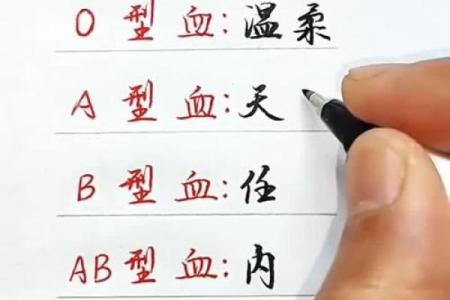 O型血:温柔
A型血:天
B型血:任
AB型血:内